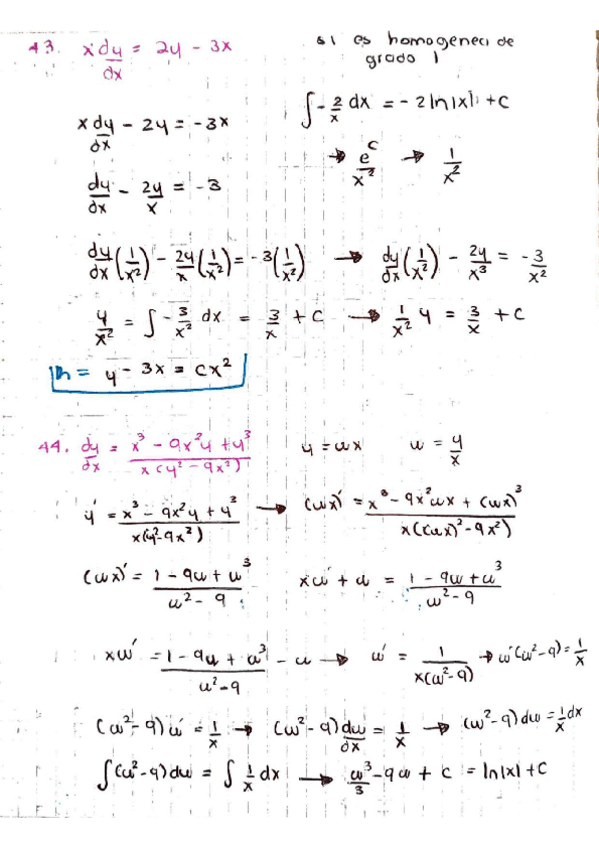 43. x dy/dx = 2y - 3x
si es homogenea de grado 1
∫ - 2/x dx = - 2 ln|x| + c
x dy/dx - 2y = -3x
→ e^c/x^2 → 1/x^2
dy/dx - 2y/x = -3
dy/dx (1/x^2) - 2y/x (1/x^2) = -3 (1/x^2) → dy/dx (1/x^2) - 2y/x^3 = -3/x^2
y/x^2 = ∫ - 3/x^2 dx = 3/x + c → 1/x^2 y = 3/x + c
R= y - 3x = cx^2
44. dy/dx = x^3 - 9x^2y + y^3 / x(y^2 - 9x^2) y = ux u = y/x
y' = x^3 - 9x^2y + y^3 / x(y^2 - 9x^2) → (ux)' = x^3 - 9x^2ux + (ux)^3 / x((ux)^2 - 9x^2)
(ux)' = 1 - 9u + u^3 / u^2 - 9 xu' + u = 1 - 9u + u^3 / u^2 - 9
xu' = 1 - 9u + u^3 / u^2 - 9 - u → u' = 1 / x(u^2 - 9) → u'(u^2 - 9) = 1/x
(u^2 - 9) u' = 1/x → (u^2 - 9) du/dx = 1/x → (u^2 - 9) du = 1/x dx
∫(u^2 - 9) du = ∫ 1/x dx → u^3/3 - 9u + c = ln|x| + c